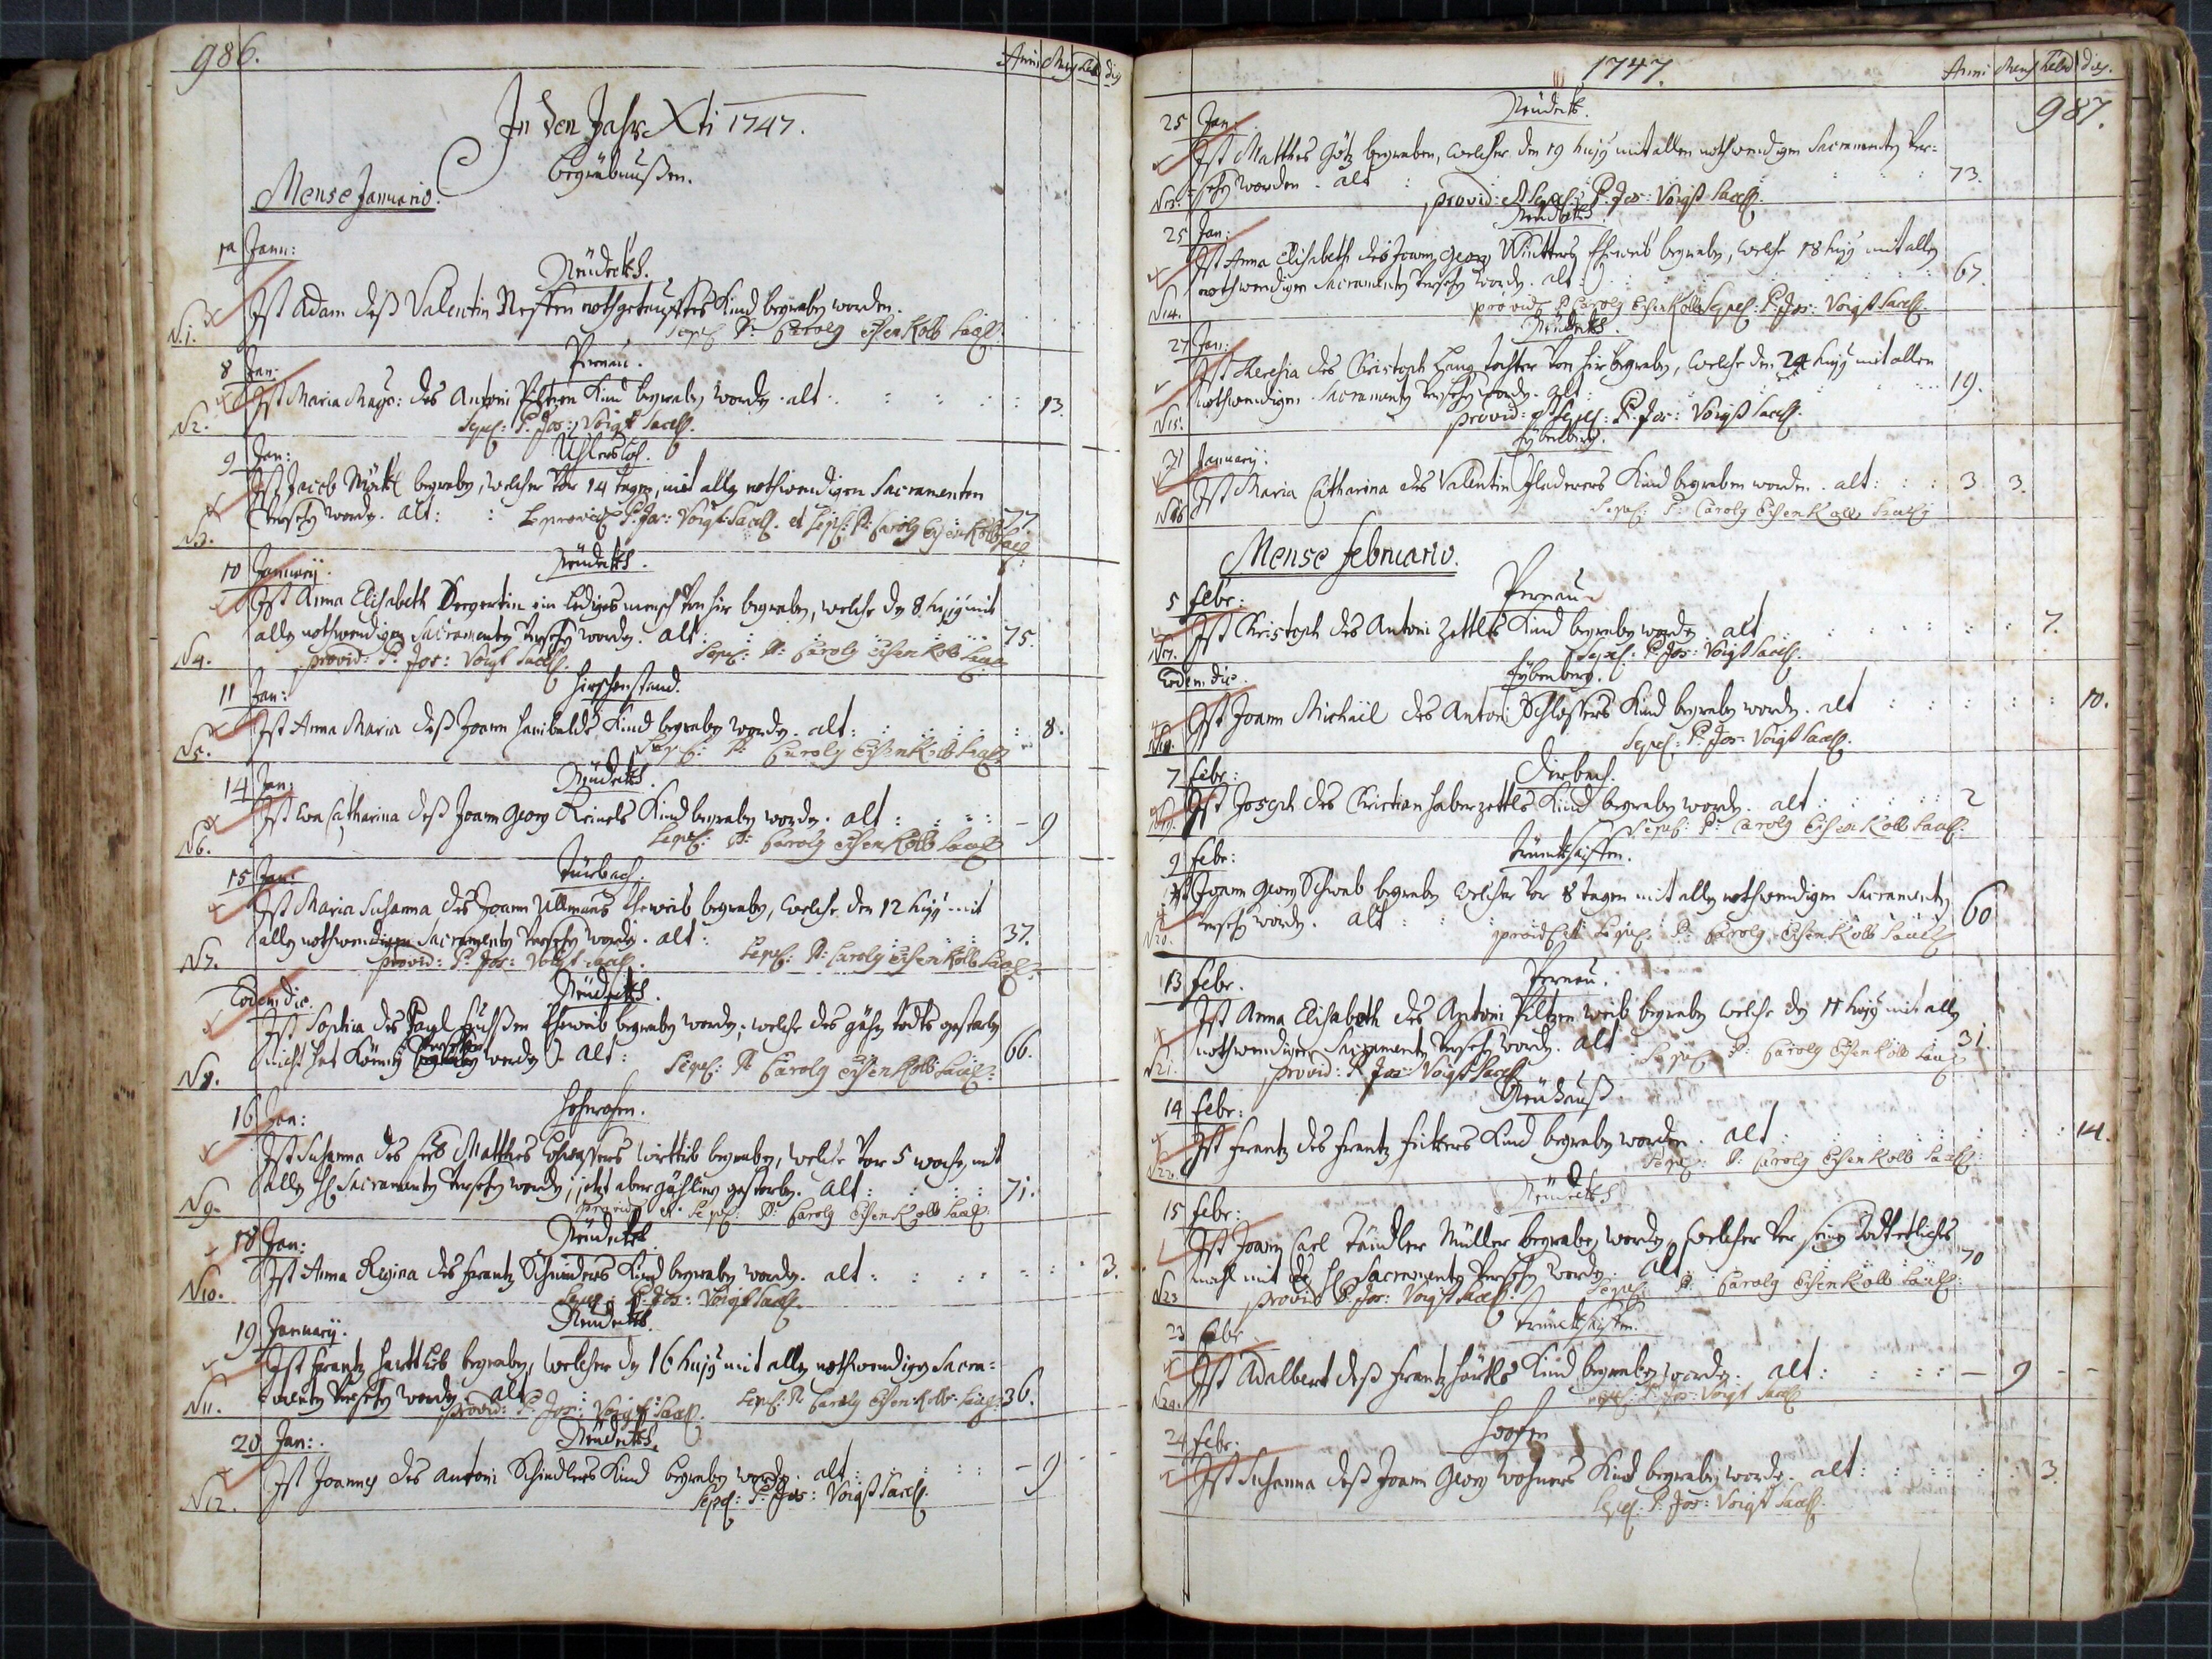 986.
Anni Mens Hebd dies
In den Jahr Xti 1747.
Begräbnußen.
Mense Januario.
1a Jann:
Neudeckh.
Ist Adam deß Valentin nothgetaufftes Kind begraben worden.
N.1.
Sepel: P: Carolg Eisenkolb Sacell:
8 Jan:
Pernau.
Ist Maria Magd: des Antoni Piltzen Kind begraben worden. alt: 13.
N2.
Sepel: P: Jos: Voigt Sacell.
9 Jan:
Ist Jacob begraben, welcher vor 14 tagen, mit allen nothwendigen Sacramenten
versehen worden. alt: 77
N3.
provid P: Jos: Voigt Sacell. et Sepel: P: Carolg Eisenkolb Sacell:
10 Januarij.
Neudeckh.
Ist Anna Elisabeth ein lediges mensch von hir begraben, welche den 8 hujg mit
allen nothwendigen Sacramenten versehen worden. alt: 75.
N4.
provid: P: Jos: Voigt Sacell. Sepel: P: Carolg Eisenkolb Sacell
11 Jan:
Hirschenstand.
Ist Anna Maria deß Joann Kind begraben worden. alt: 8.
N5.
Sepel: P: Carolg Eisenkolb Sacell
14 Jan:
Neudeckh.
Ist Eva Catharina deß Joann Georg Reinels Kind begraben worden. alt: – 9
N6.
Sepel: P: Carolg Eisenkolb Sacell
15 Jan:
Türbach.
Ist Maria Susanna des Joann Ullmans Eheweib begraben, welche den 12 hujg mit
allen nothwendigen Sacramenten versehen worden. alt: 37.
N7.
provid: P: Jos: Voigt Sacell. Sepel: P: Carolg Eisenkolb Sacell
Eodem die.
Neudeckh.
Ist Sophia des Paul Eheweib begraben worden, welche des gähen todts gestorben
nicht hat können versehen werden. alt: 66.
N8.
Sepel: P: Carolg Eisenkolb Sacell:
16 Jan:
Hohenofen.
Ist Susanna des Matthes Wittib begraben, welche vor 5 wochen mit
allen hl Sacramenten versehen worden, jetzt aber gähling gestorben. alt: 71.
N9.
provid et Sepel: P: Carolg Eisenkolb Sacell
18 Jan:
Neudeckh.
Ist Anna Regina des Frantz Schneiders Kind begraben worden. alt: 3.
N10.
Sepel: P: Jos: Voigt Sacell.
19 Januarij.
Neudeckh.
Ist Frantz begraben, welcher den 16 hujg mit allen nothwendigen Sacra=
menten versehen worden alt 36.
N11.
provid: P: Jos: Voigt Sacell. Sepel: P: Carolg Eisenkolb Sacell:
20 Jan:
Neudeckh.
Ist Joannes des Antoni Schindlers Kind begraben worden. alt: – 9 -
N12.
Sepel: P: Jos: Voigt Sacell.
1747.
Anni Mens Hebd dies.
987.
25 Jan:
Neudeckh.
Ist Matthes Götz begraben, welcher den 19 hujg mit allen nothwendigen Sacramenten ver=
sehen worden. alt 73.
N13.
provid: et Sepel: P: Jos: Voigt Sacell.
25 Jan:
Neudeckh.
Ist Anna Elisabeth des Joann Georg Eheweib begraben, welche 18 hujg mit allen
nothwendigen Sacramenten versehen worden. alt: 67.
N14.
provid P: Carolg Eisenkolb Sepel: P: Jos: Voigt Sacell.
27 Jan:
Neudeckh.
Ist Theresia des Christoph Lang tochter von hir begraben, welche den 24 hujg mit allen
nothwendigen Sacramenten versehen worden. alt: 19.
N15.
provid: et Sepel: P: Jos: Voigt Sacell.
31 Januarij.
Eybenberg.
Ist Maria Catharina des Valentin Kind begraben worden. alt: 3 3.
N16
Sepel: P: Carolg Eisenkolb Sacell
Mense Februario.
5 Febr:
Pernau
Ist Christoph des Antoni Zettls Kind begraben worden alt 7.
N17.
Sepel: P: Jos: Voigt Sacell.
Eodem die.
Eybenberg.
Ist Joann Michäil des Antoni Schlossers Kind begraben worden. alt 10.
N18.
Sepel: P: Jos: Voigt Sacell.
7 Febr:
Ist Joseph des Christian Haberzettls Kind begraben worden. alt 2
N19.
Sepel: P: Carolg Eisenkolb Sacell.
9 Febr:
Trinckhseiffen.
Ist Joann Georg Schwab begraben welcher vor 8 tagen mit allen nothwendigen Sacramenten
versehen worden. alt: 60
N20.
provid et Sepel: P: Carolg Eisenkolb Sacell
13 Febr.
Pernau.
Ist Anna Elisabeth des Antoni Piltzen weib begraben welche den 11 hujg mit allen
nothwendigen Sacramenten versehen worden. alt 31.
N21.
provid: P: Jos: Voigt Sacell Sepel: P: Carolg Eisenkolb Sacell
14 Febr:
Neuhauß.
Ist Frantz des Frantz Fickers Kind begraben worden. alt 14.
N22.
Sepel: P: Carolg Eisenkolb Sacell:
15 Febr:
Neudeckh
Ist Joann Carl Tändler Müller begraben worden, welcher vor seinen Todt etliches
mahl mit den hl Sacramenten versehen worden. alt 70
N23
provid P: Jos: Voigt Sacell. Sepel: P: Carolg Eisenkolb Sacell:
23 Febr
Trinckhseiffen.
Ist Adalbert deß Frantz Kind begraben worden. alt: – 9 - -
N24.
Sepel: P: Jos: Voigt Sacell
24 Febr.
Ist Susanna deß Joann Georg Kind begraben worden. alt: 3.
Sepel: P: Jos: Voigt Sacell.